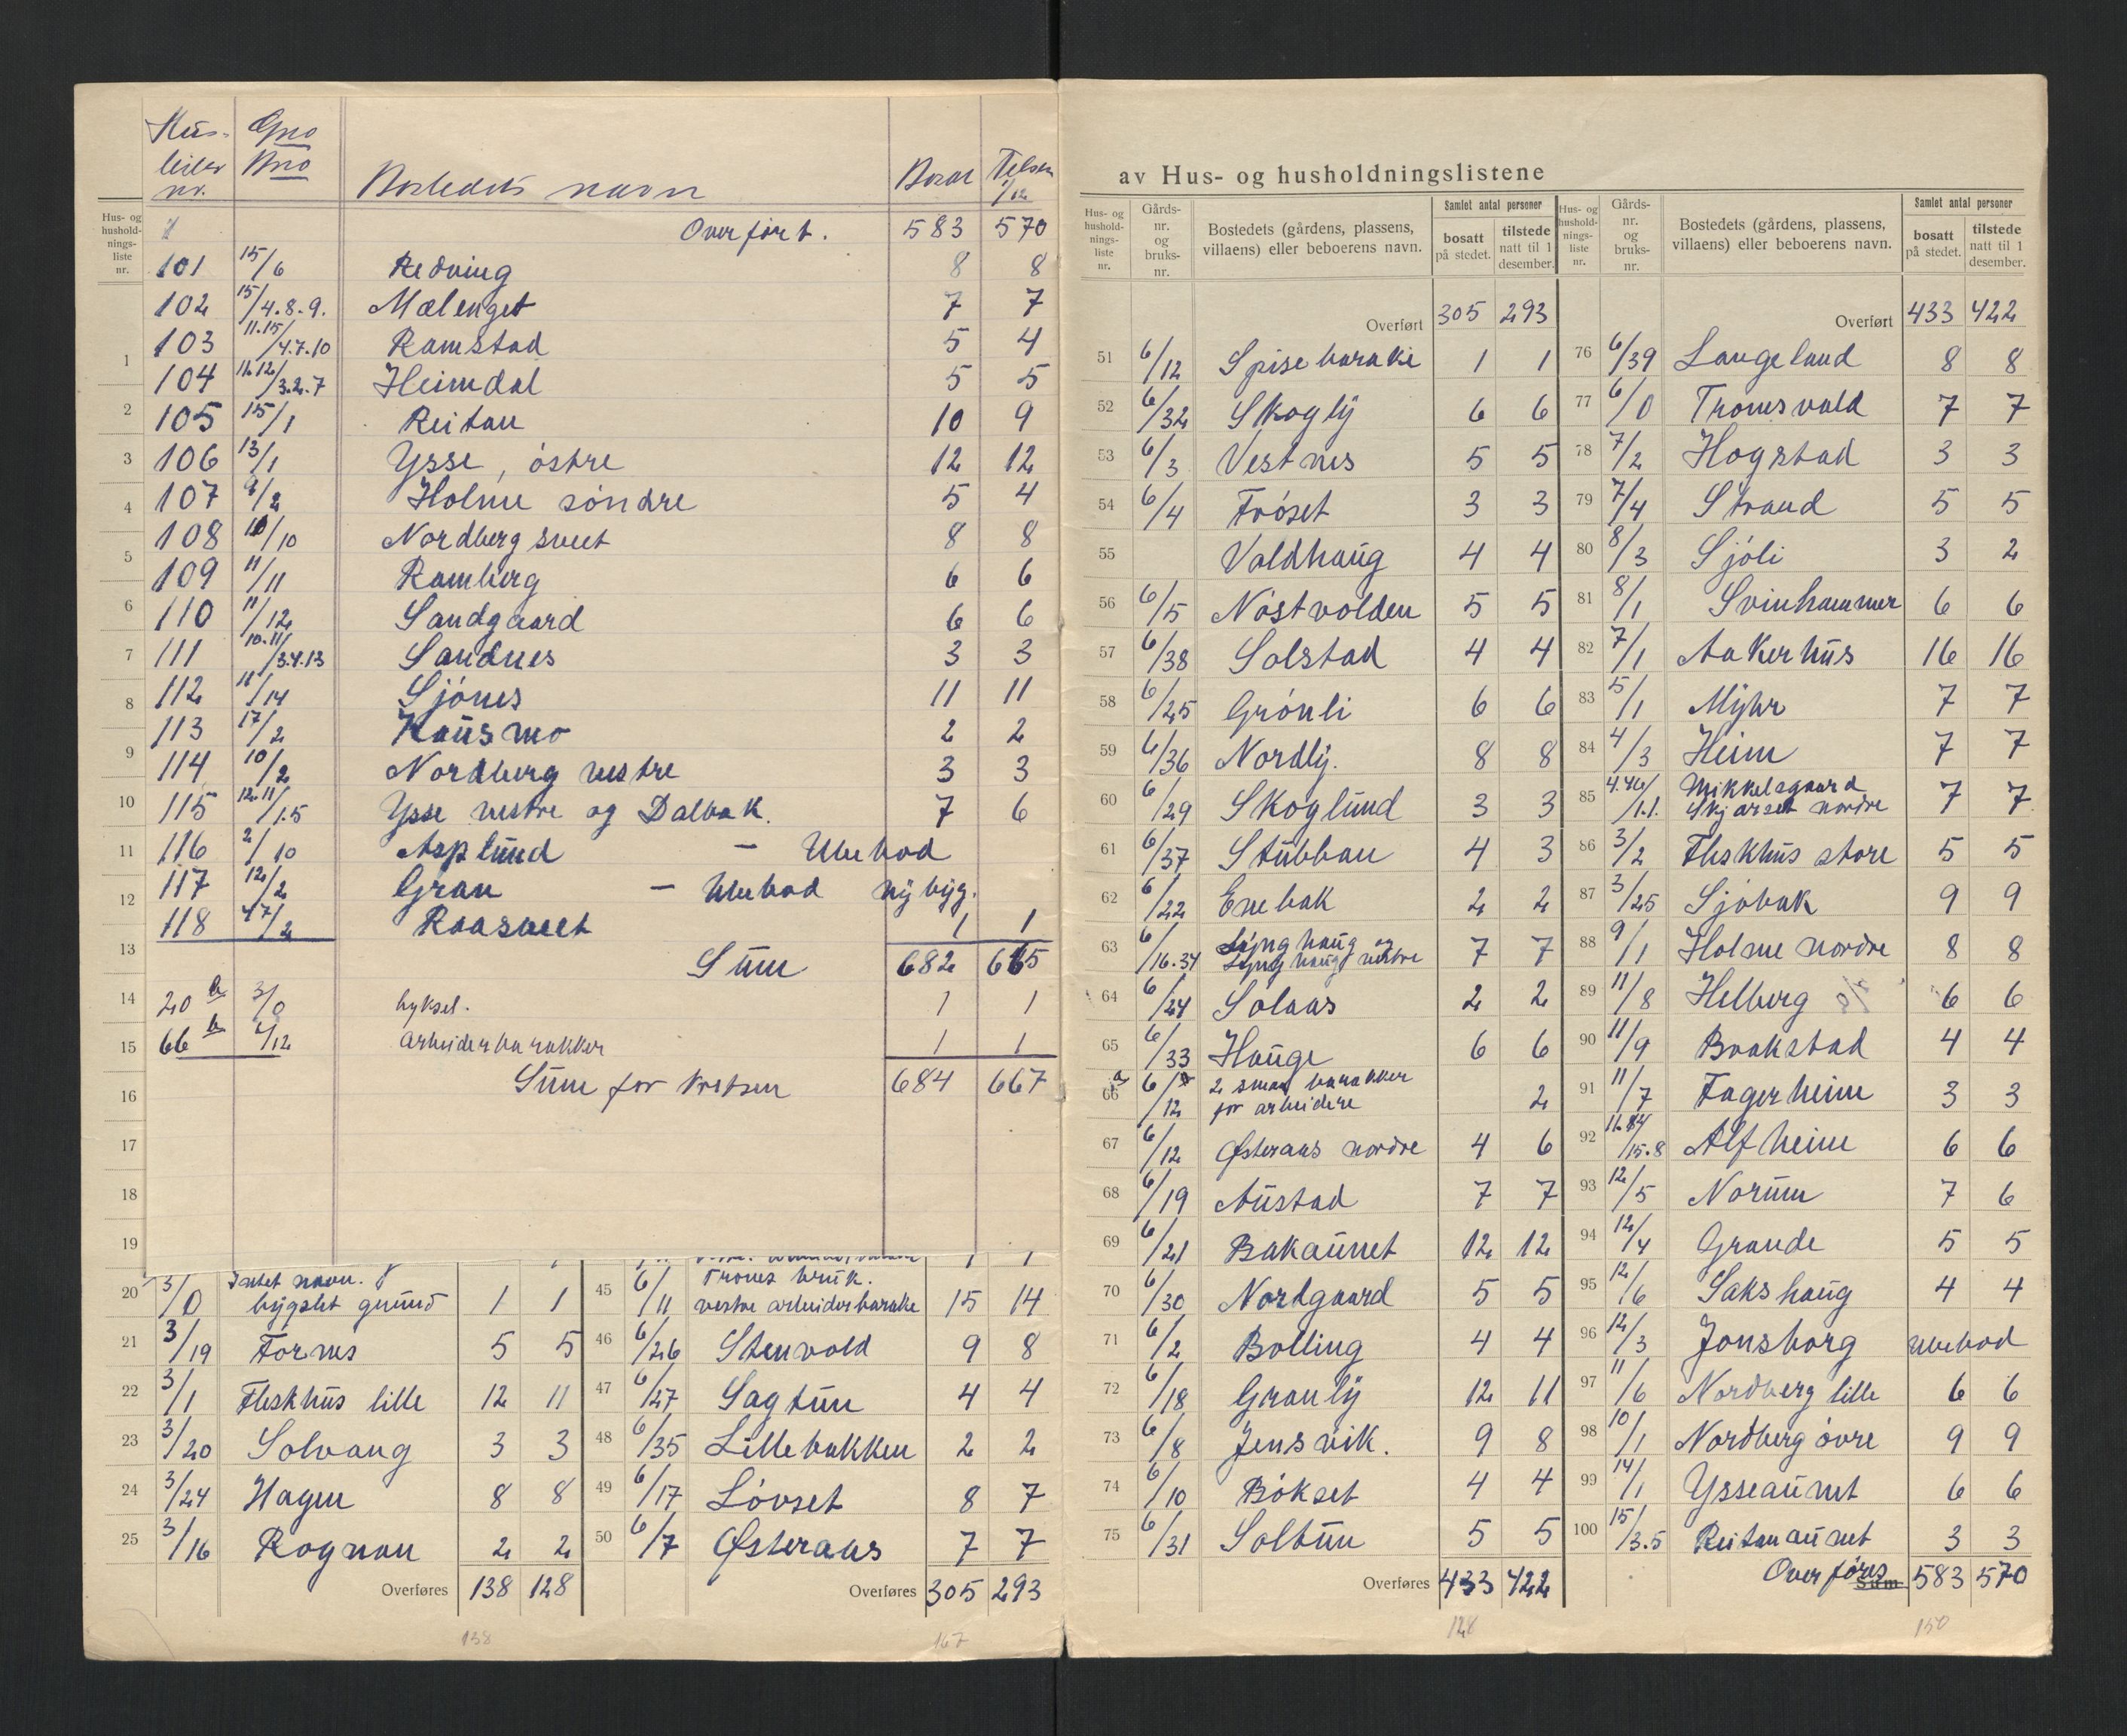 Hus- Gno
lister Bno Bostedets navn Bosat Tilsted
nr. 1/12
Hus- og
hushold-
nings-
liste
nr.
Overført. 583 570
101 15/6 Redning 8 8
102 15/4.8.9. Mælenget 7 7
103 11.15/4.7.10 Ramstad 5 4
104 11.12/3.2.7 Heimdal 5 5
105 15/1 Reitan 10 9
106 13/1 Ysse, östre 12 12
107 9/2 Holme söndre 5 4
108 10/10 Nordberg sveet 8 8
109 11/11 Ramberg 6 6
110 11/12 Sandgaard 6 6
111 10.11/3.4.13 Sandnes 3 3
112 11/14 Sjönes 11 11
113 17/2 Kausmo 2 2
114 10/2 Nordberg vestre 3 3
115 12.11/1.5 Ysse vestre og Dalbak. 7 6
116 2/10 Asplund – Ubebod
117 12/2 Gran – Ubebod nybyg.
118 47/2 Raasveet 1 1
Sum 682 665
20 b 3/0 byksel. 1 1
66 b 6/12 arbeiderbarakker 1 1
Sum for kretsen 684 667
1
2
3
4
5
6
7
8
9
10
11
12
13
14
15
16
17
18
19
20 3/0 Intet navn.
bygslet grund 1 1
21 3/19 Fornes 5 5
22 3/1 Fleskhus lille 12 11
23 3/20 Solvang 3 3
24 3/24 Hagen 8 8
25 3/16 Rognan 2 2
Overføres 138 128
138
1 1
45 6/11 Trones bruk.
vestre arbeiderbarakke 15 14
46 6/26 Stenvold 9 8
47 6/27 Sagtun 4 4
48 6/35 Lillebakken 2 2
49 6/17 Lövset 8 7
50 6/7 Østeraas 7 7
Overføres 305 293
167
av Hus- og husholdningslistene
Hus- og
hushold-
nings-
liste
nr.
Gårds-
nr.
og
bruks-
nr.
Bostedets (gårdens, plassens,
villaens) eller beboerens navn.
Samlet antal personer
bosatt
på stedet.
tilstede
natt til 1
desember.
Overført 305 293
51 6/12 Spisebarakke 1 1
52 6/32 Skogly 6 6
53 6/3 Vestnes 5 5
54 6/4 Fröset 3 3
55 Voldhaug 4 4
56 6/5 Nöstvolden 5 5
57 6/38 Solstad 4 4
58 6/25 Grönli 6 6
59 6/36 Nordly. 8 8
60 6/29 Skoglund 3 3
61 6/37 Stubban 4 3
62 6/22 Enebak 2 2
63 6/16.34 Lyng haug og
Lyng haug vestre 7 7
64 6/24 Solaas 2 2
65 6/33 Hauge 6 6
66 a 6/12 2 smaa barakker
for arbeidere 2
67 6/12 Østeraas nordre 4 6
68 6/19 Austad 7 7
69 6/21 Bakaunet 12 12
70 6/30 Nordgaard 5 5
71 6/2 Bolling 4 4
72 6/18 Granly 12 11
73 6/8 Jensvik. 9 8
74 6/10 Bökset 4 4
75 6/31 Soltun 5 5
Overføres 433 422
128
Hus- og
hushold-
nings-
liste
nr.
Gårds-
nr.
og
bruks-
nr.
Bostedets (gårdens, plassens,
villaens) eller beboerens navn.
Samlet antal personer
bosatt
på stedet.
tilstede
natt til 1
desember.
Overført 433 422
76 6/39 Langeland 8 8
77 6/0 Tronesvold 7 7
78 7/2 Hogstad 3 3
79 7/4 Strand 5 5
80 8/3 Sjöli 3 2
81 8/1 Svinhammer 6 6
82 7/1 Aakerhus 16 16
83 5/1 Myhr 7 7
84 4/3 Heim 7 7
85 4.46/1.1. Mikkelsgaard
Skjærset nordre 7 7
86 3/2 Fleskhus store 5 5
87 3/25 Sjöbak 9 9
88 9/1 Holme nordre 8 8
89 11/8 Helberg 6 6
90 11/9 Brakstad 4 4
91 11/7 Fagerheim 3 3
92 11.14/15.8 Alfheim 6 6
93 12/5 Norum 7 6
94 12/4 Grande 5 5
95 12/6 Sakshaug 4 4
96 12/3 Jonsborg Ubebod
97 11/6 Nordberg lille 6 6
98 10/1 Nordberg övre 9 9
99 14/1 Ysseaunet 6 6
100 15/3.5 Reitanaunet 3 3
Overføres Sum 583 570
150